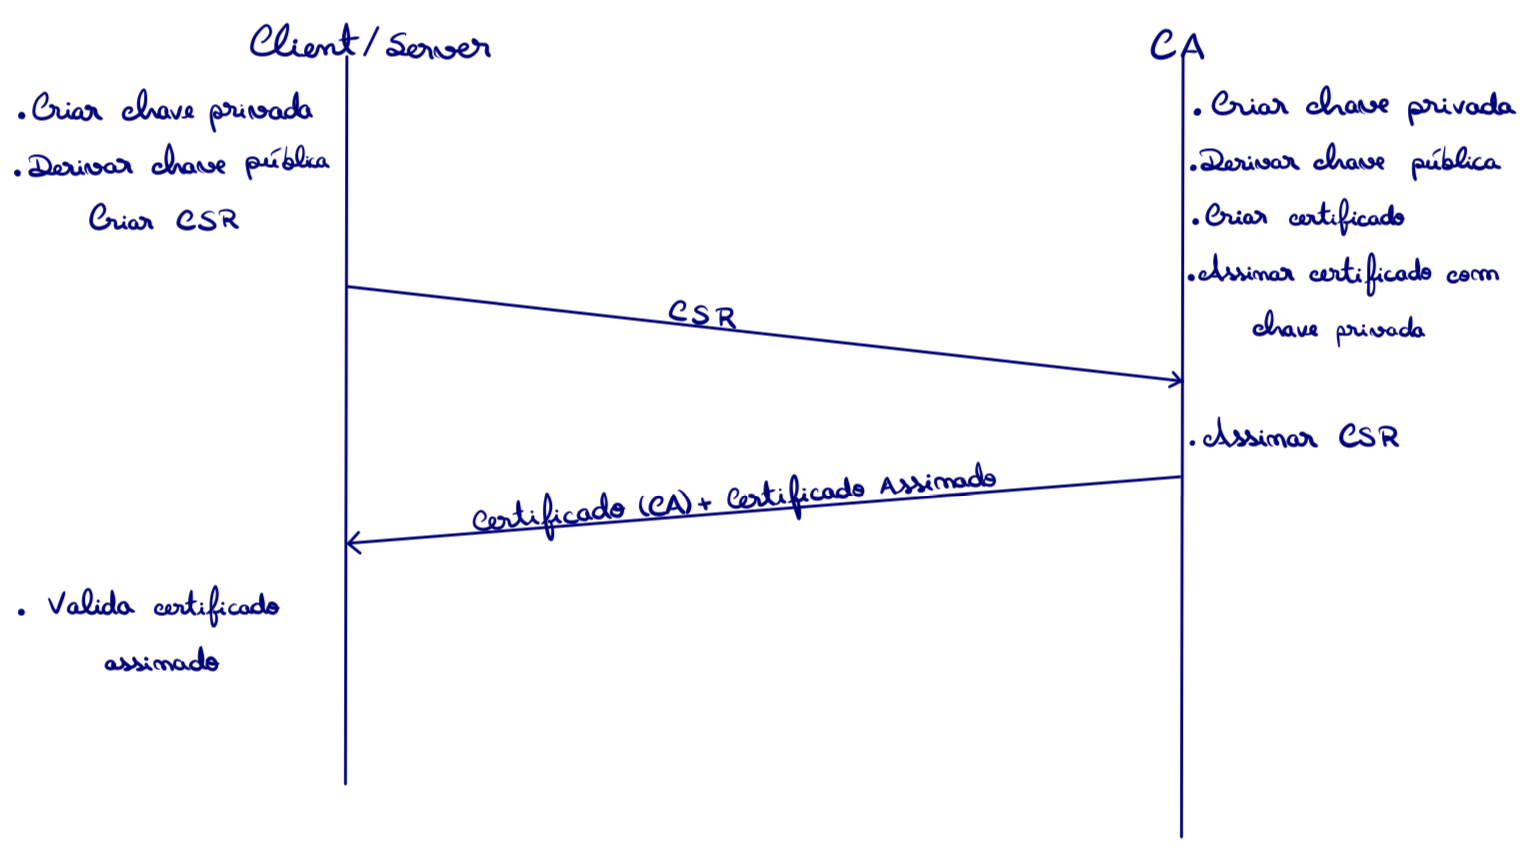 Client/Server
CA
. Criar chave privada
. Derivar chave pública
Criar CSR
. Criar chave privada
. Derivar chave pública
. Criar certificado
. Assinar certificado com
chave privada
CSR
. Assinar CSR
Certificado (CA) + Certificado Assinado
. Valida certificado
assinado